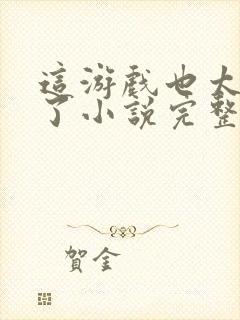 這游戲也太
了小說完整
賀金